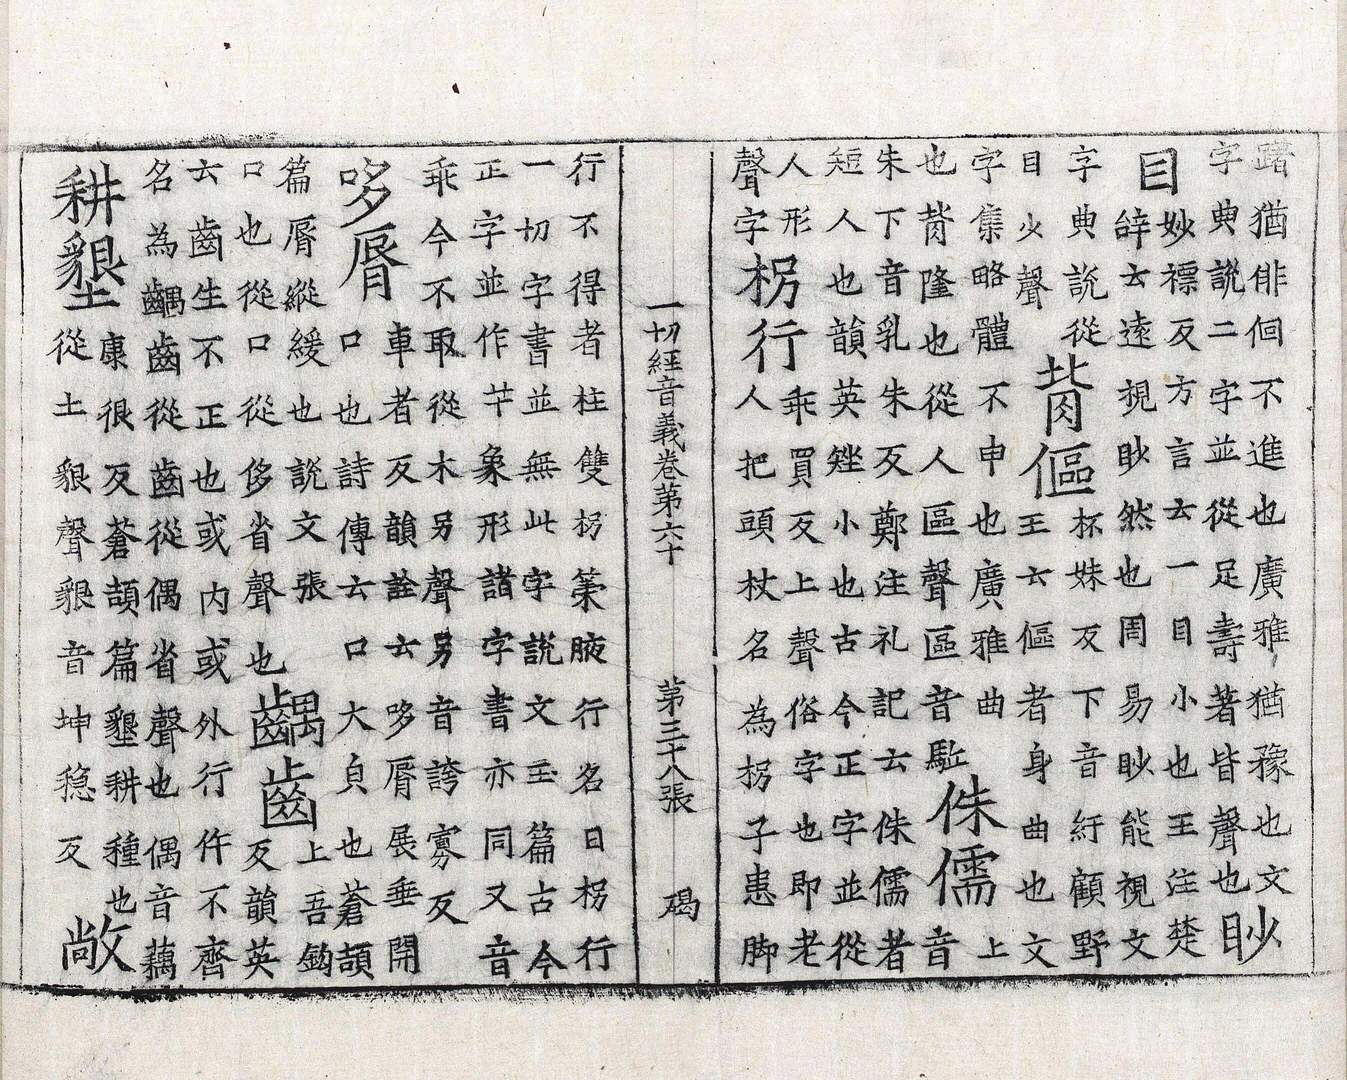 躇猶俳佪不進也廣雅猶豫也文
字典說二字並從足壽著皆聲也眇
目妙褾反方言云一目小也王注楚
辭云遠視眇然也周易眇能視文
字典說從
目火聲
背傴
杯妹反下音紆顧野
王云傴者身曲也文
字集略體不申也廣雅曲上
也背隆也從人區聲區音駈侏儒音
朱下音乳朱反鄭注礼記云侏儒者
短人也韻英矬小也古今正字並從
人形
聲字
枴行
乖買反上聲俗字也即老
人把頭杖名為枴子患脚
一切經音義卷第六十 第三十八張 碣
行不得者柱雙枴築腋行名曰枴行
一切字書並無此字說文玉篇古今
正字並作𠁥象形諸字書亦同又音
乖今不取從木另聲另音誇寡反
哆脣
車者反韻詮云哆脣展垂開
口也詩傳云口大皃也蒼頡
篇脣縱緩也說文張
口也從口從侈省聲也
齵齒
上吾鉤
反韻英
云齒生不正也或內或外行仵不齊
名為齵齒從齒從偶省聲也偶音藕
耕墾
康很反蒼頡篇墾耕種也
從土貇聲貇音坤穏反
敞